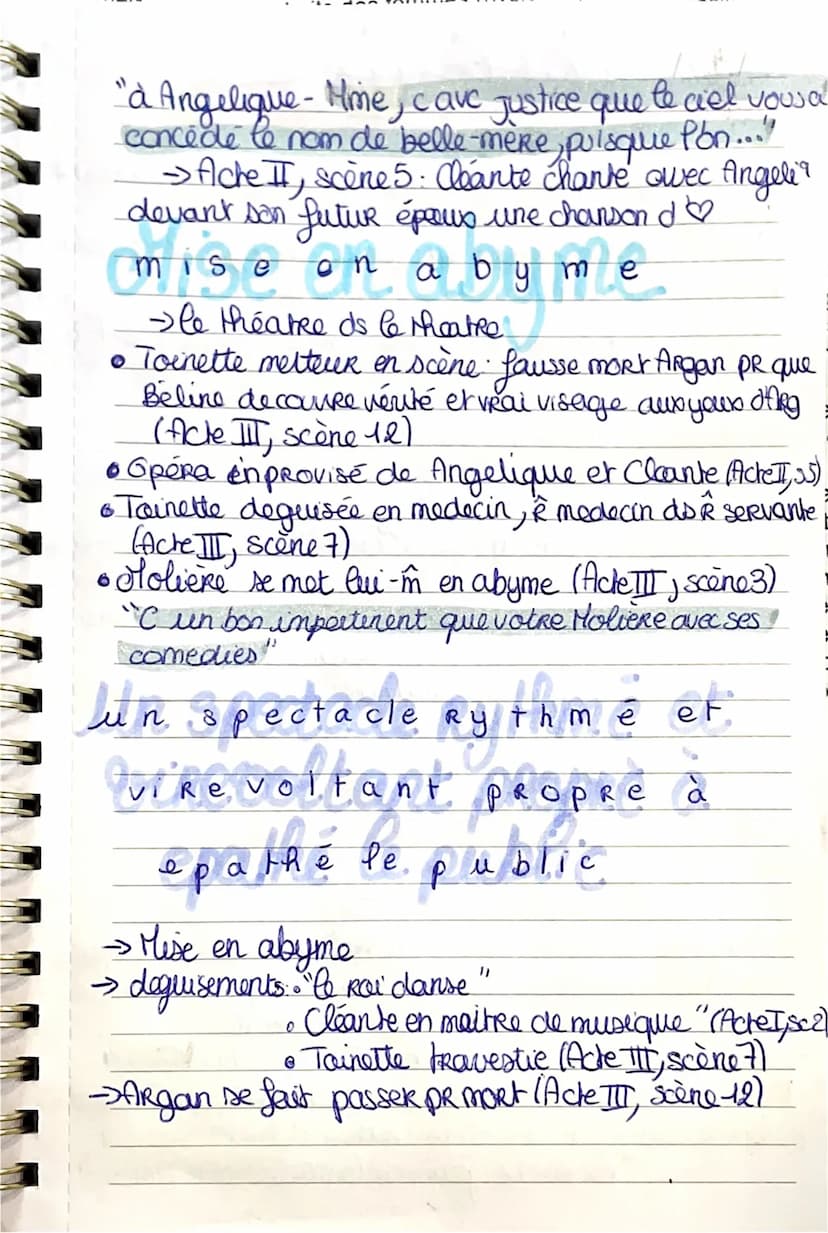 "à Angelique - Mme, c avc justice que le ciel vous a
concédé le nom de belle-mère, puisque l'on..."
→ Acte II, scène 5 : Cléante chante avec Angeliq
devant son futur époux une chanson d ♡
Mise en abyme
→ le théatre ds le theatre
• Toinette metteur en scène : fausse mort Argan pr que
Béline decouvre vérité et vrai visage aux yeux d'Arg
(Acte III, scène 12)
• Opéra inprovisé de Angelique et Cleante (Acte II, s5)
• Toinette deguisée en medecin, ê medecin ds ê servante
(Acte III, scène 7)
• Molière se met lui-m̂ en abyme (Acte III, scène 3)
"C un bon impertinent que votre Molière avec ses
comedies"
Un spectacle rythmé et
virevoltant propre à
epathé le public
→ Mise en abyme
→ deguisements : • "le roi danse"
• Cléante en maitre de musique" (Acte I, sc2)
• Toinette travestie (Acte III, scène 7)
→ Argan se fait passer pr mort (Acte III, scène 12)